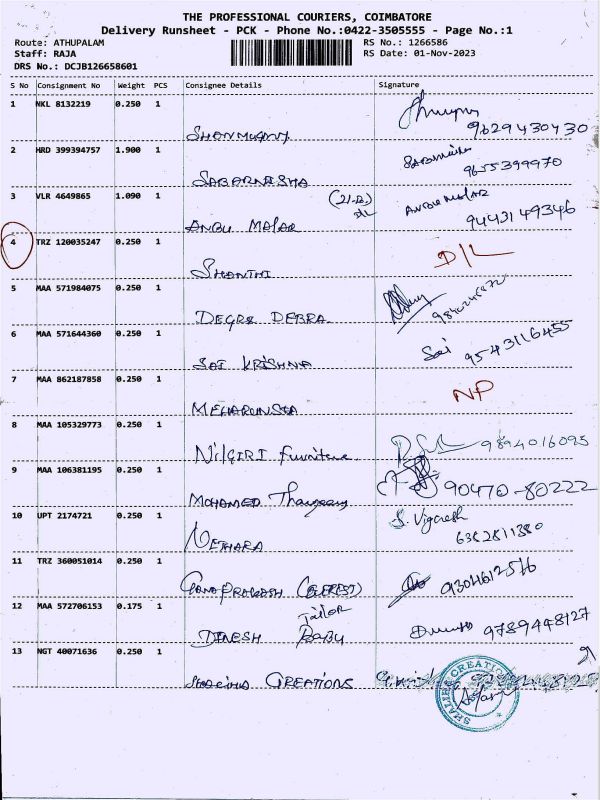 THE PROFESSIONAL COURIERS, COIMBATORE
Delivery Runsheet - PCK - Phone No.:0422-3505555 - Page No.:1
Route: ATHUPALAM RS No.: 1266586
Staff: RAJA RS Date: 01-Nov-2023
DRS No.: DCJB126658601
S No Consignment No Weight PCS Consignee Details Signature
1 NKL 8132219 0.250 1
9629430430
2 HRD 399394757 1.900 1
SABARNESHA 9655399970
3 VLR 4649865 1.090 1
ANBU MALAR ANBU MALAR 9443149346
4 TRZ 120035247 0.250 1
SHANTHI D/L
5 MAA 571984075 0.250 1
DEGRS DEBRA
6 MAA 571644360 0.250 1
SAI KRISHNA Sai 9543116455
7 MAA 862187858 0.250 1
NP
8 MAA 105329773 0.250 1
NilGIRI Furniture 9894016095
9 MAA 106381195 0.250 1
MOHAMED 90470-80222
10 UPT 2174721 0.250 1
NETHARA S. Vignesh
6382811380
11 TRZ 360051014 0.250 1
(EVEREST)
12 MAA 572706153 0.175 1
Tailor
DINESH BABU 9789448127
13 NGT 40071636 0.250 1
CREATIONS